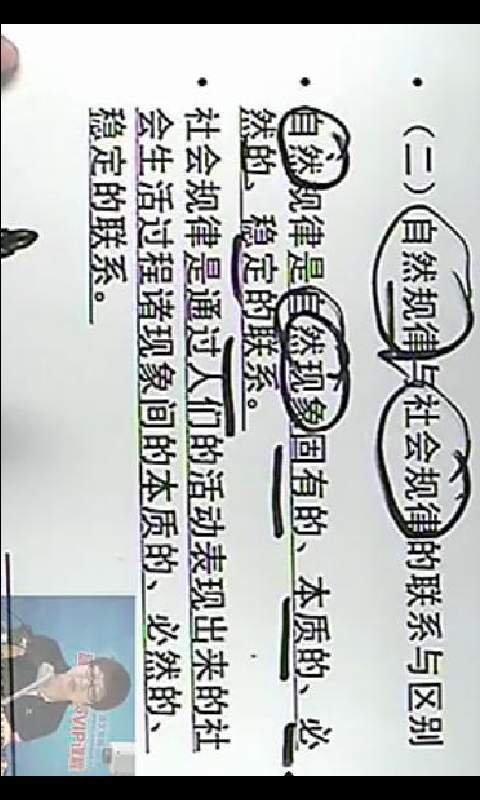 (二)自然规律与社会规律的联系与区别
• 自然规律是自然现象固有的、本质的、必
然的、稳定的联系。
• 社会规律是通过人们的活动表现出来的社
会生活过程诸现象间的本质的、必然的、
稳定的联系。
VIP课程